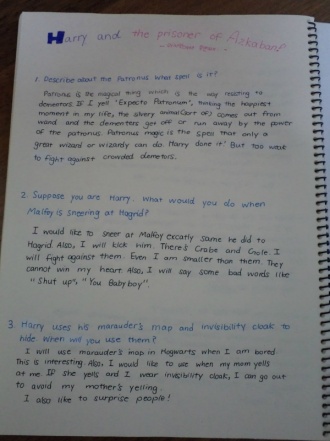 Harry and the prisoner of Azkaban!
1. Describe about the Patronus. What spell is it?
Patronus is the magical thing which is the way reacting to
dementors. If I yell "Expecto Patronum", thinking the happiest
moment in my life, the silvery animal(sort of) comes out from
wand and the dementers get off or run away by the power
of the patronus. Patronus magic is the spell that only a
great wizard or wizardy can do. Harry done it! But too weak
to fight against crowded demetors.
2. Suppose you are Harry. What would you do when
Malfoy is sneering at Hagrid?
I would like to sneer at Malfoy excatly same he did to
Hagrid. Also, I will kick him. There's Crabe and Goyle. I
will fight against them. Even I am smaller than them. They
cannot win my heart. Also, I will say some bad words like
"Shut up", "You Baby boy".
3. Harry uses his marauder's map and invisibility cloak to
hide. When will you use them?
I will use marauder's map in Hogwarts when I am bored.
This is interesting. Also, I would like to use when my mom yells
at me. If she yells and I wear invisibility cloak, I can go out
to avoid my mother's yelling.
I also like to surprise people!